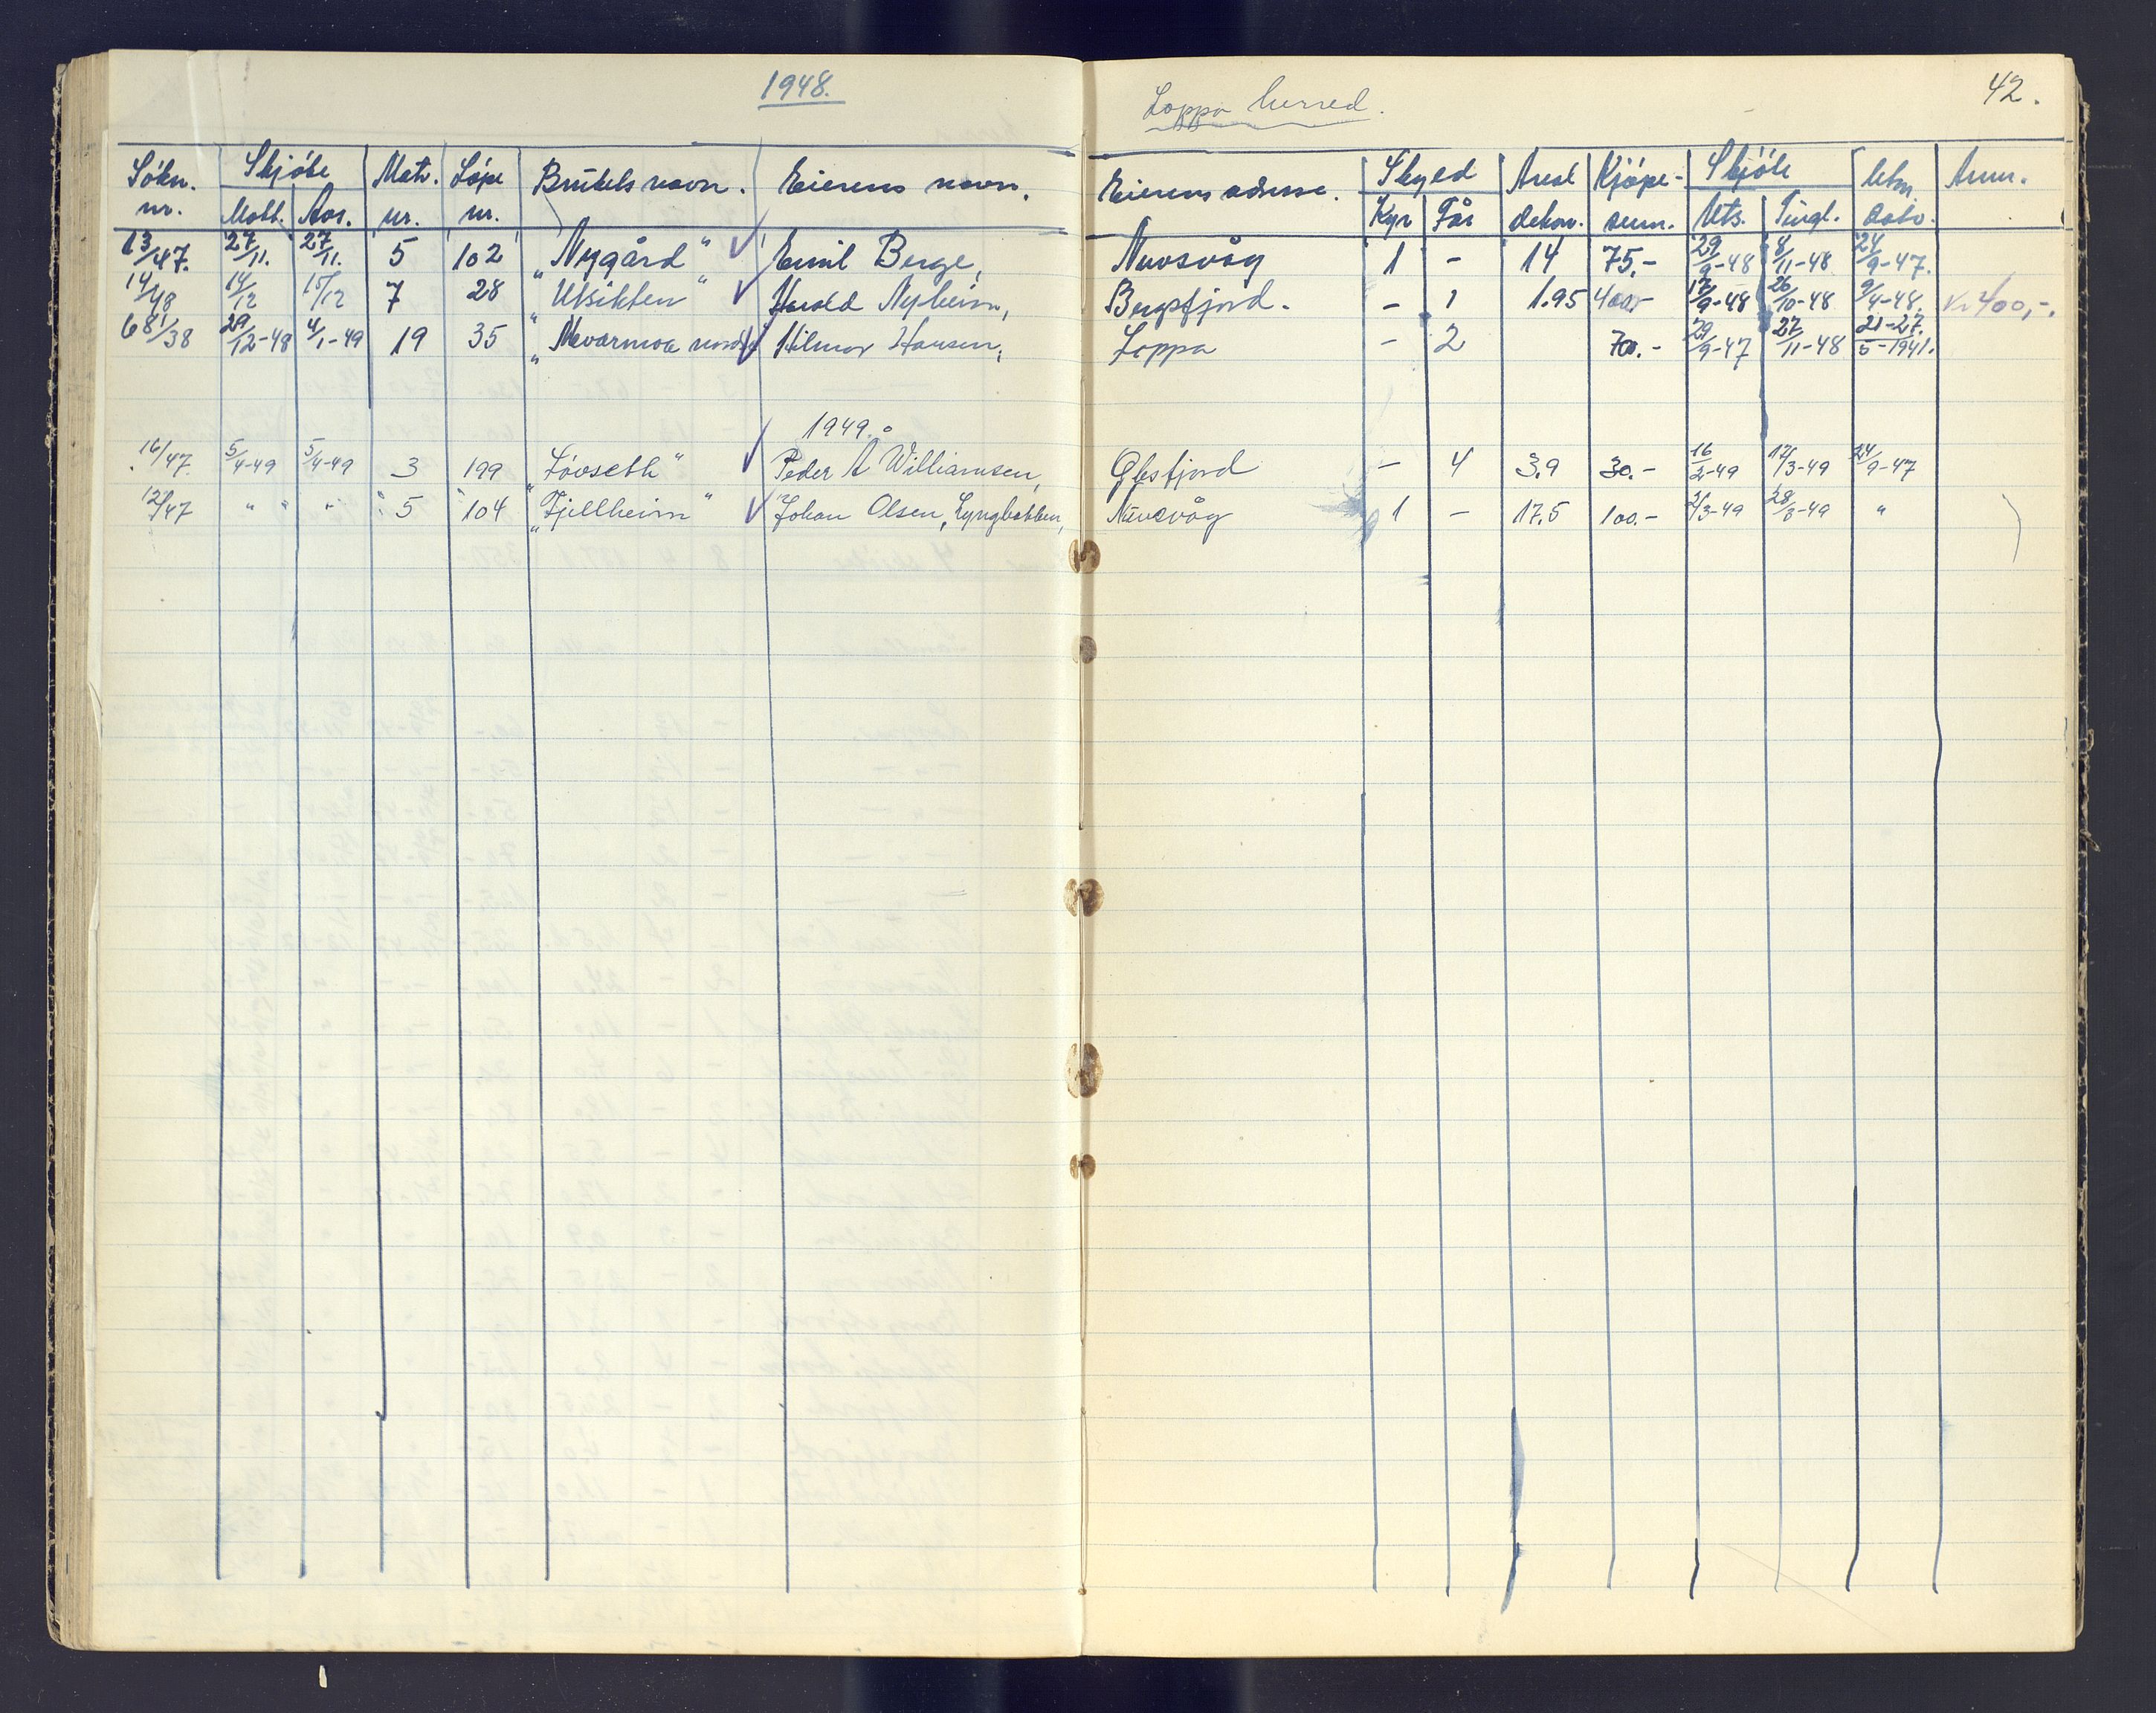 1948.
Søkn. nr. Skjøte Matr. nr. Løpe nr. Brukets navn. Eierens navn.
Mott. Avs.
13/47. 27/11. 27/11. 5 102 "Nygård" Emil Berge,
14/48 14/12 15/12 7 28 "Utsikten" Harald Nyheim,
681/38 29/12-48 4/1-49 19 35 " Hilmar Hansen,
1949.
16/47. 5/4-49 5/4-49 3 199 "Løvseth" Peder A Williamsen,
12/47 " " " 5 104 "Fjellheim" Johan Olsen, Lyngbakken,
Loppa herred.
42.
Eierens adresse. Skyld Areal dekar. Kjøpe-sum. Skjøte dato. Anm.
Kyr Får Uts. Tingl.
Nuvsvåg 1 - 14 75.- 29/9-48 8/11-48 24/9-47.
Bergsfjord. - 1 1.95 400.- 17/9-48 26/10-48 9/4-48. Kr 400,-.
Loppa - 2 70.- 29/9-47 27/11-48 21-27./5-1941.
Øksfjord - 4 3.9 30.- 16/2-49 17/3-49 24/9-47
Nuvsvåg 1 - 17.5 100.- /3-49 28/3-49 "